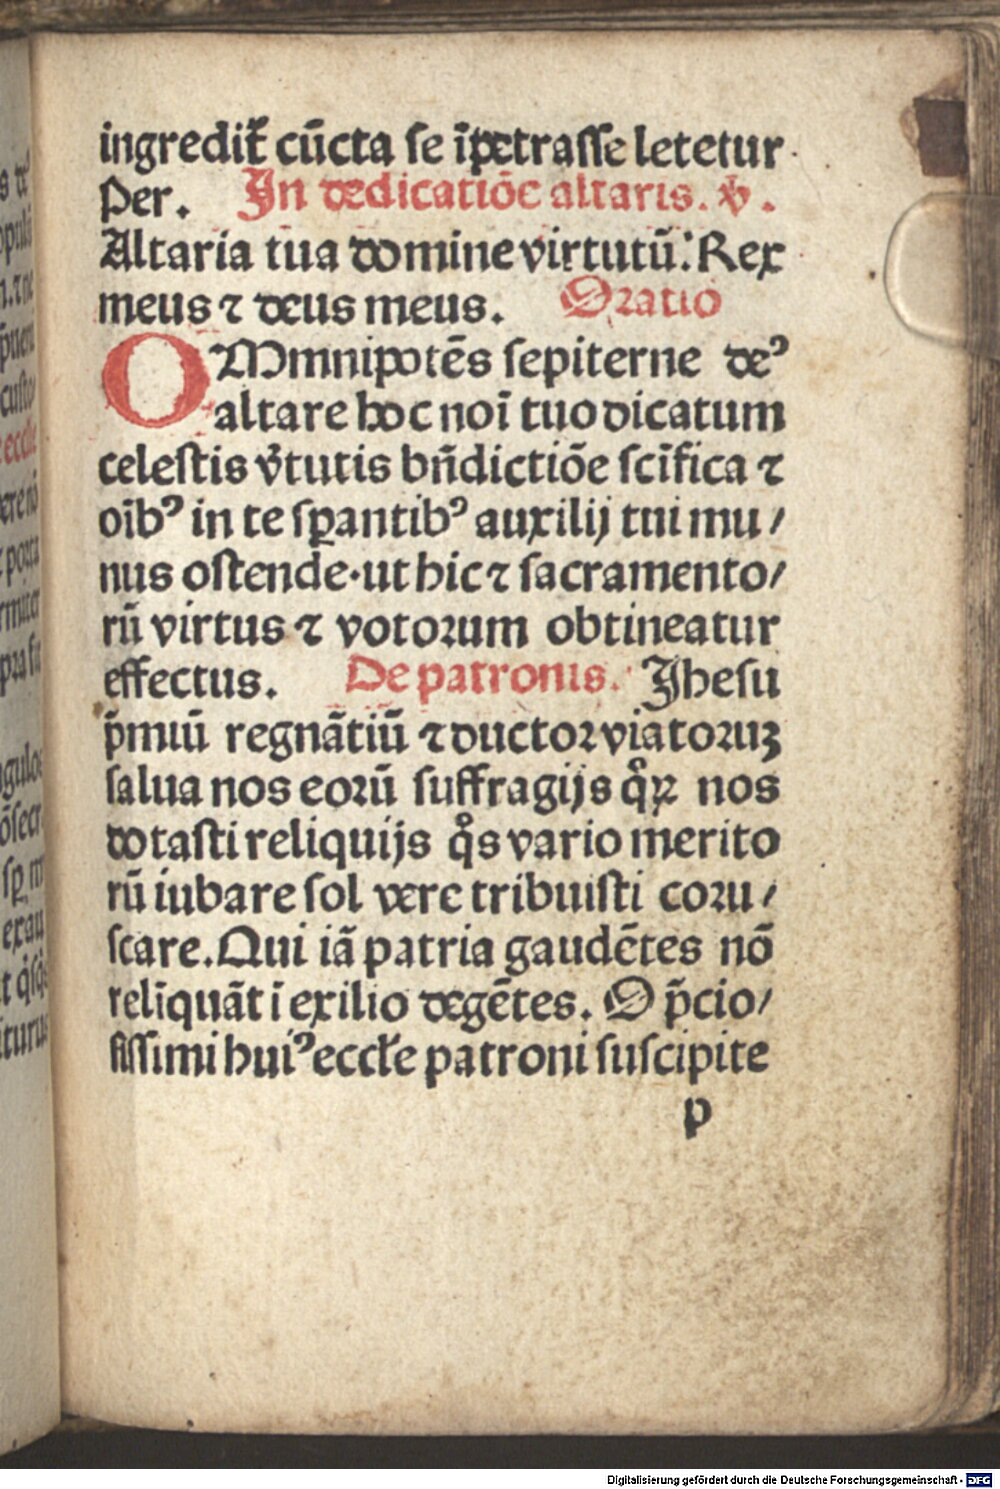 ingredit᷑ cūcta se īpetrasse letetur
Per. In dedicatiōe altaris. v̾.
Altaria tua domine virtutū: Rex
meus ⁊ deus meus. Oratio
OMmnipotēs sepiterne deꝰ
altare hoc noī tuo dicatum
celestis v̾tutis bn̄dictiōe scīfica ⁊
oībꝰ in te sꝑantibꝰ auxilij tui mu/
nus ostende·ut hic ⁊ sacramento/
rū virtus ⁊ votorum obtineatur
effectus. De patronis. Jhesu
p̄miū regnātiū ⁊ ductor viatoruꝫ
salua nos eorū suffragijs qͦꝝ nos
dotasti reliquijs qͦs vario merito
rū iubare sol vere tribuisti coru/
scare. Qui iā patria gaudētes nō
relīquāt ī exilio degētes. O p̄cio/
sissimi huiꝰ eccl̄e patroni suscipite
p
Digitalisierung gefördert durch die Deutsche Forschungsgemeinschaft - DFG